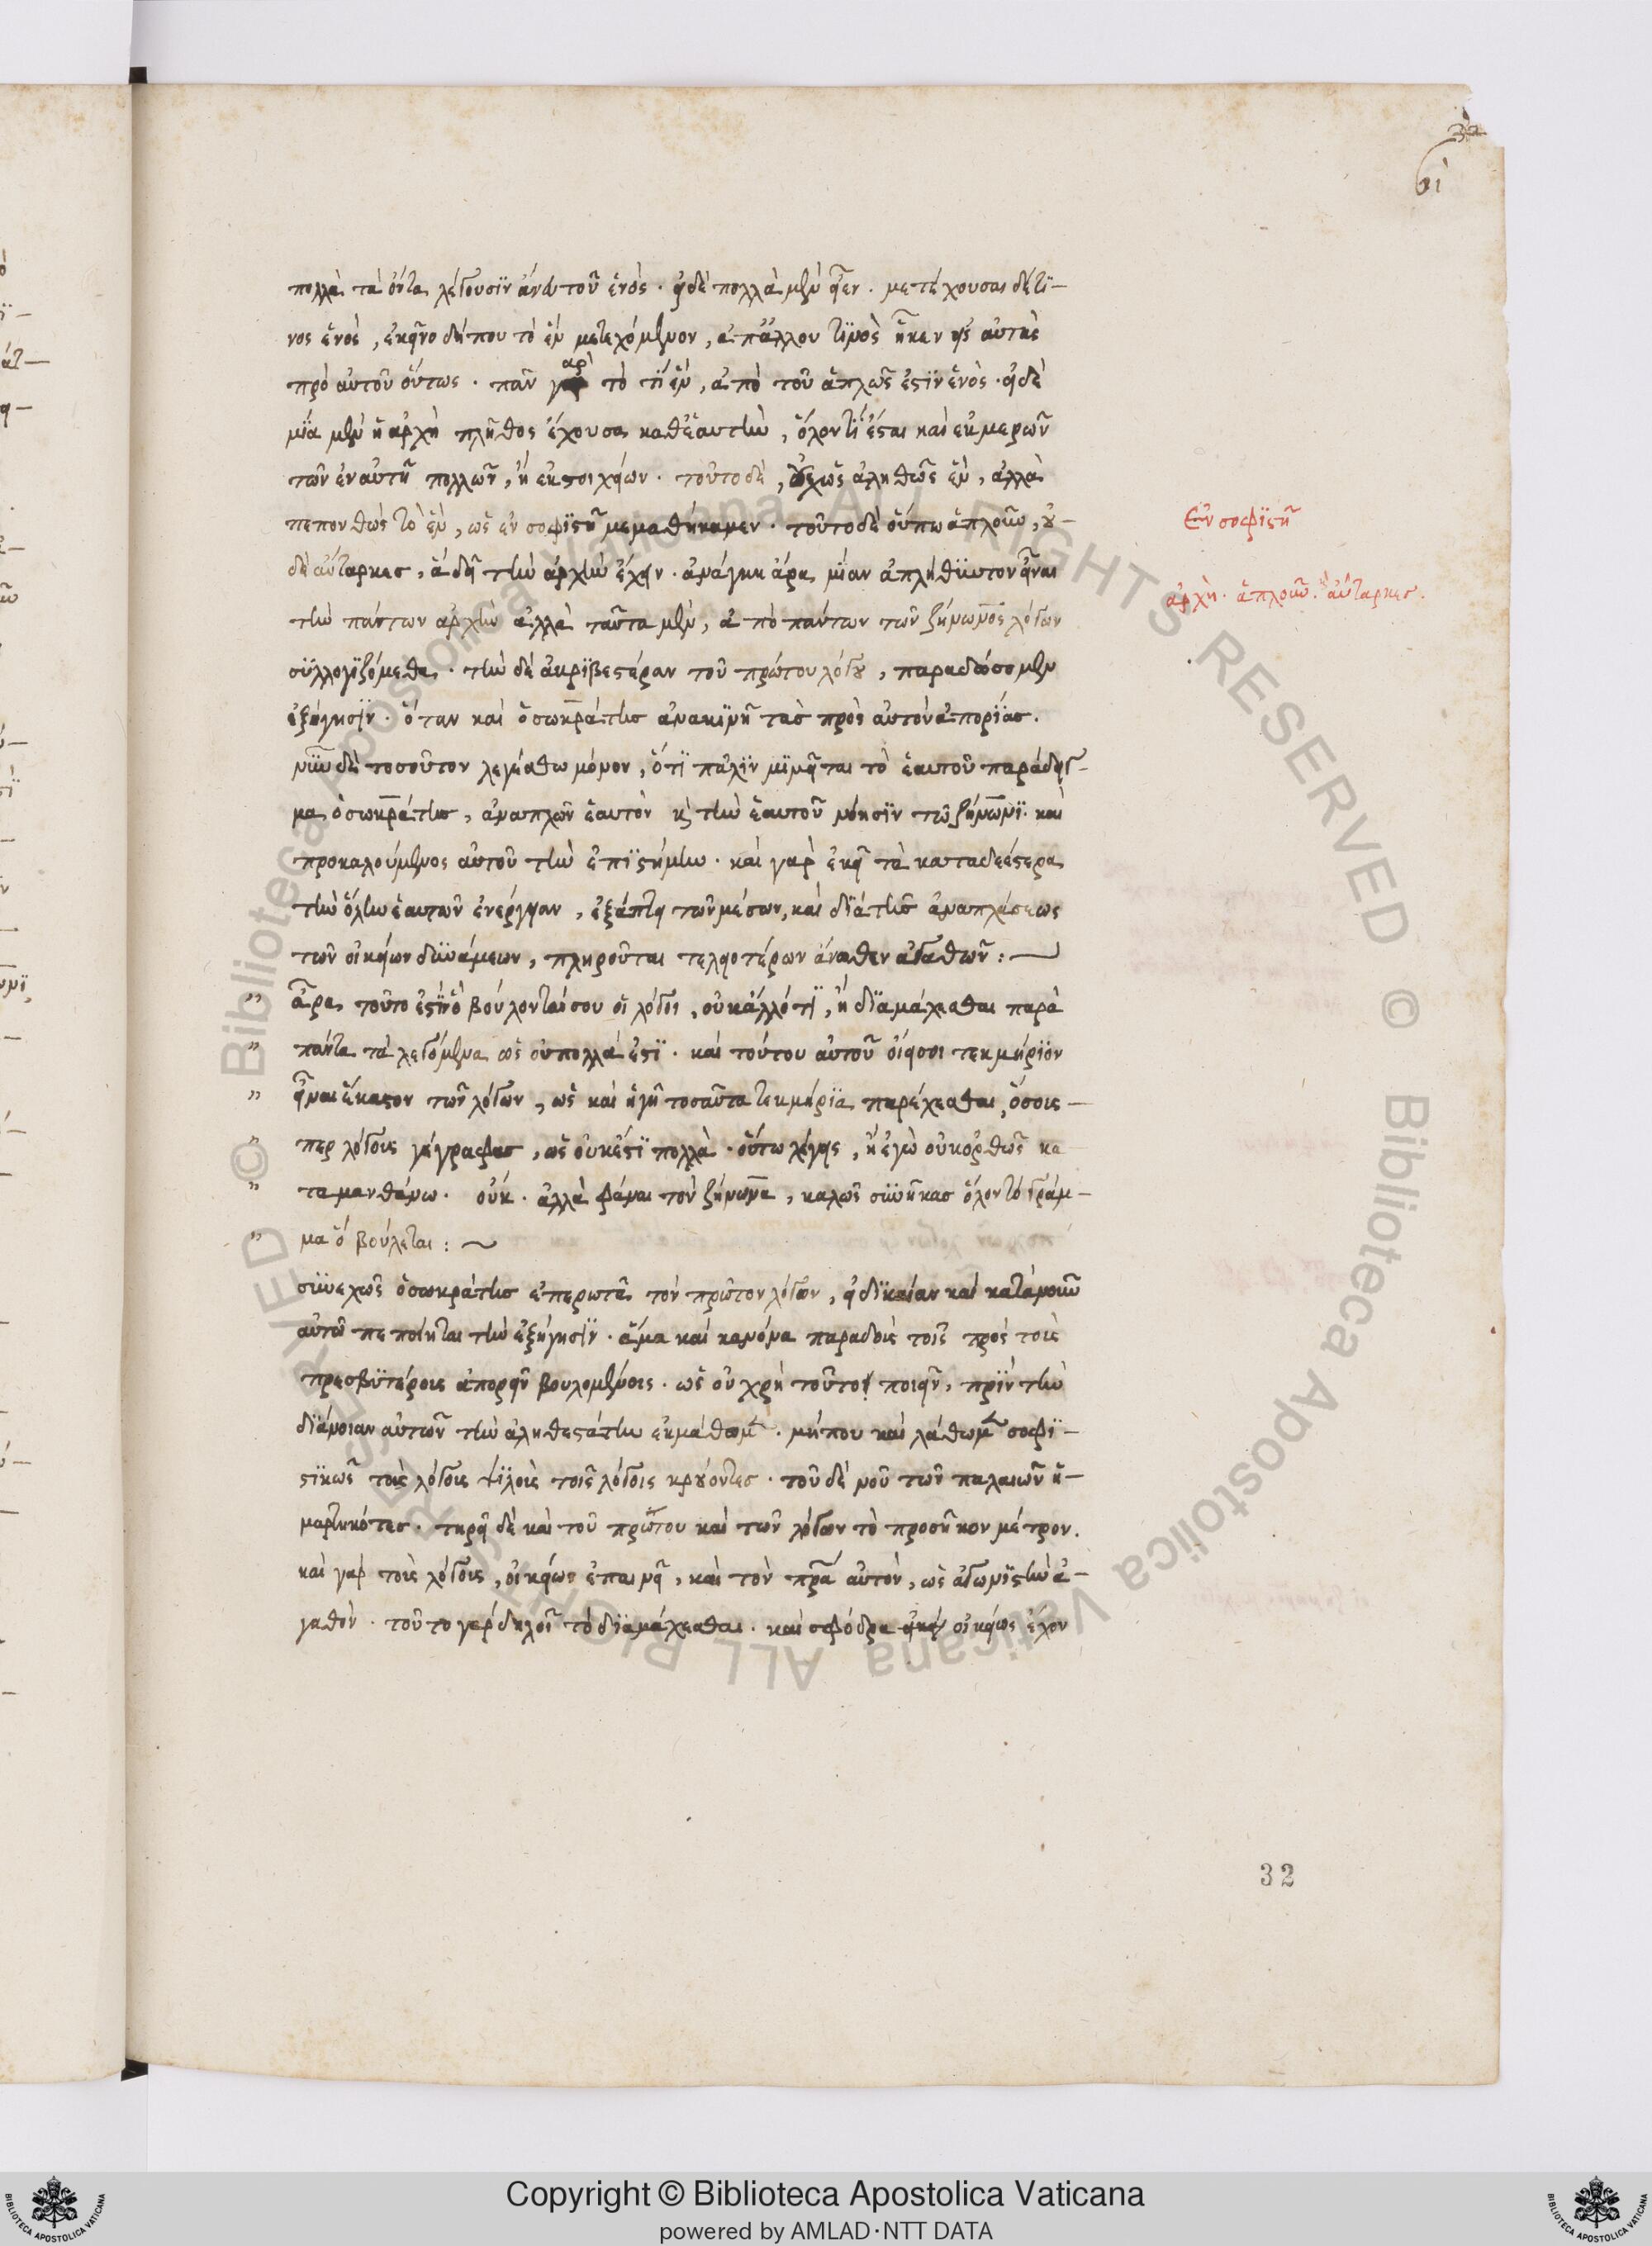 32
πολλὰ τὰ ὄντα λέγουσιν ἄνευ τοῦ ἑνός · εἰ δὲ πολλαὶ μὲν εἶεν · μετέχουσαι δὲ τι-
νος ἑνὸς, ἐκεῖνο δήπου τὸ ἓν μετεχόμενον, ἀπ' ἄλλου τινὸς ἧκεν εἰς αὐτὰς
πρὸ αὐτοῦ ὄντως · πᾶν γὰρ τὸ τὶ ἓν, ἀπὸ τοῦ ἁπλῶς ἐστὶν ἑνὸς · εἰ δὲ
μία μὲν ἡ ἀρχὴ πλῆθος ἔχουσα καθ' ἑαυτὴν, ὅλον τί ἔσται καὶ ἐκ μερῶν
τῶν ἐν αὐτῇ πολλῶν, ἢ ἐκ στοιχείων · τοῦτο δὲ, οὐχ ὡς ἀληθῶς ἓν, ἀλλὰ
πεπονθὼς τὸ ἓν, ὡς ἐν σοφιστῇ μεμαθήκαμεν · τοῦτο δὲ οὔπω ἁπλοῦν, οὐ-
δὲ αὔταρκες, ἃ δεῖ τὴν ἀρχὴν ἔχειν · ἀνάγκη ἄρα μίαν ἀπλήθυντον εἶναι
τὴν πάντων ἀρχὴν ἀλλὰ ταῦτα μὲν, ἀπὸ πάντων τῶν ζήνωνος λόγων
συλλογιζόμεθα · τὴν δὲ ἀκριβεστέραν τοῦ πρώτου λόγου, παραδώσομεν
ἐξήγησιν · ὅταν καὶ ὁ σωκράτης ἀνακινῇ τὰς πρὸς αὐτὸν ἀπορίας.
νῦν δὲ τοσοῦτον λεγέσθω μόνον, ὅτι πάλιν μιμεῖται τὸ ἑαυτοῦ παράδειγ-
μα ὁ σωκράτης, ἀναπλῶν ἑαυτὸν κ τὴν ἑαυτοῦ νόησιν τῷ ζήνωνι · καὶ
προκαλούμενος αὐτοῦ τὴν ἐπιστήμην · καὶ γὰρ ἐκεῖ τὰ καταδεέστερα
τὴν ὅλην ἑαυτῶν ἐνέργειαν, ἐξάπτει τῶν μέσων, καὶ διὰ τῆς ἀναπλώσεως
τῶν οἰκείων δυνάμεων, πληροῦται τελειοτέρων ἄνωθεν ἀγαθῶν :
" ἆρα τοῦτο ἐστὶν ὃ βούλονταί σου οἱ λόγοι, οὐκ ἄλλό τι, ἢ διαμάχεσθαι παρὰ
" πάντα τὰ λεγόμενα ὡς οὐ πολλά ἐστι · καὶ τούτου αὐτοῦ οἴει σοι τεκμήριον
" εἶναι ἕκαστον τῶν λόγων, ὡς καὶ ἡγῇ τοσαῦτα τεκμήρια παρέχεσθαι, ὅσους-
" περ λόγους γέγραφας, ὡς οὐκ ἔστι πολλὰ · οὕτω λέγεις, ἢ ἐγὼ οὐκ ὀρθῶς κα
" ταμανθάνω · οὐκ · ἀλλὰ φάναι τὸν ζήνωνα, καλῶς συνῆκας ὅλον τὸ γράμ-
" μα ὃ βούλεται :
συνεχῶς ὁ σωκράτης ἐπερωτᾷ τὸν πρῶτον λόγον, εἰ δικαίαν καὶ κατὰ νοῦν
αὐτοῦ πεποίηται τὴν ἐξήγησιν · ἅμα καὶ κανόνα παραδοὺς τοῖς πρὸς τοὺς
πρεσβυτέρους ἀπορεῖν βουλομένοις · ὡς οὐ χρὴ τοῦτο ποιεῖν, πρὶν τὴν
διάνοιαν αὐτῶν τὴν ἀληθεστάτην ἐκμάθωμεν · μήπου καὶ λάθωμεν σοφι-
στικῶς τοὺς λόγους ψιλοὺς τοῖς λόγοις κρούοντες · τοῦ δὲ νοῦ τῶν παλαιῶν ἡ-
μαρτηκότες · τηρεῖ δὲ καὶ τοῦ πρώτου καὶ τῶν λόγων τὸ προσῆκον μέτρον.
καὶ γὰρ τοὺς λόγους, οἰκείως ἐπαινεῖ, καὶ τὸν πρα αὐτὸν, ὡς ἀγωνιστὴν ἀ-
γαθὸν · τοῦτο γὰρ δηλοῖ τὸ διαμάχεσθαι · καὶ σφόδρα οἰκείως ἔχον
Ἐν σοφιστῇ
ἀρχὴ · ἁπλοῦν · αὔταρκες.
32
© Biblioteca Apostolica Vaticana ALL RIGHTS RESERVED
© Biblioteca Apostolica Vaticana ALL RIGHTS RESERVED
Copyright © Biblioteca Apostolica Vaticana
powered by AMLAD·NTT DATA
BIBLIOTECA APOSTOLICA VATICANA
BIBLIOTECA APOSTOLICA VATICANA